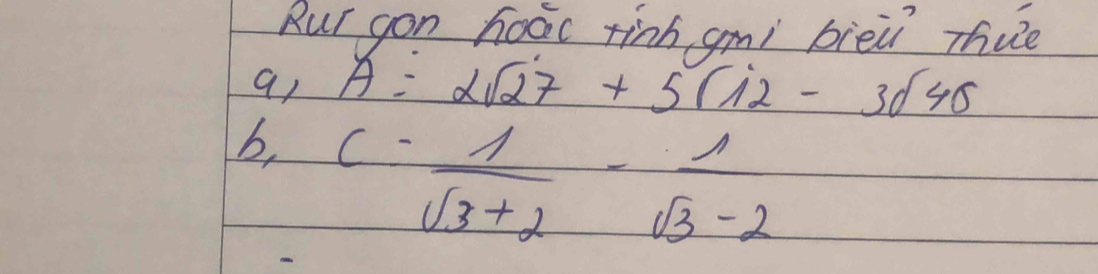 Rut gọn hoặc tính gmi biểu thức
a, A = 2√27 + 5√12 - 3√48
b, C = 1/(√3+2) - 1/(√3-2)